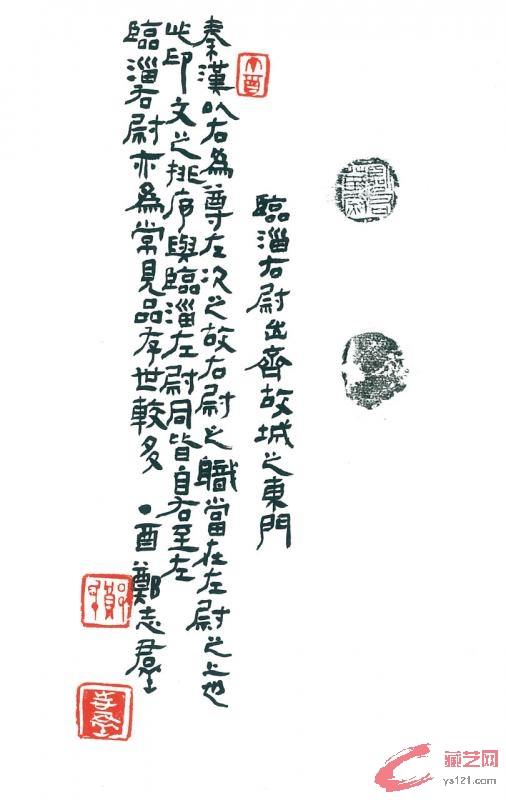 臨淄右尉出齊故城之東門
秦漢以右為尊左次之故右尉之職當在左尉之上也
此印文之排序與臨淄左尉同皆自右至左
臨淄右尉亦為常見品存世較多 酉鄭志群
藏艺网
ys121.com